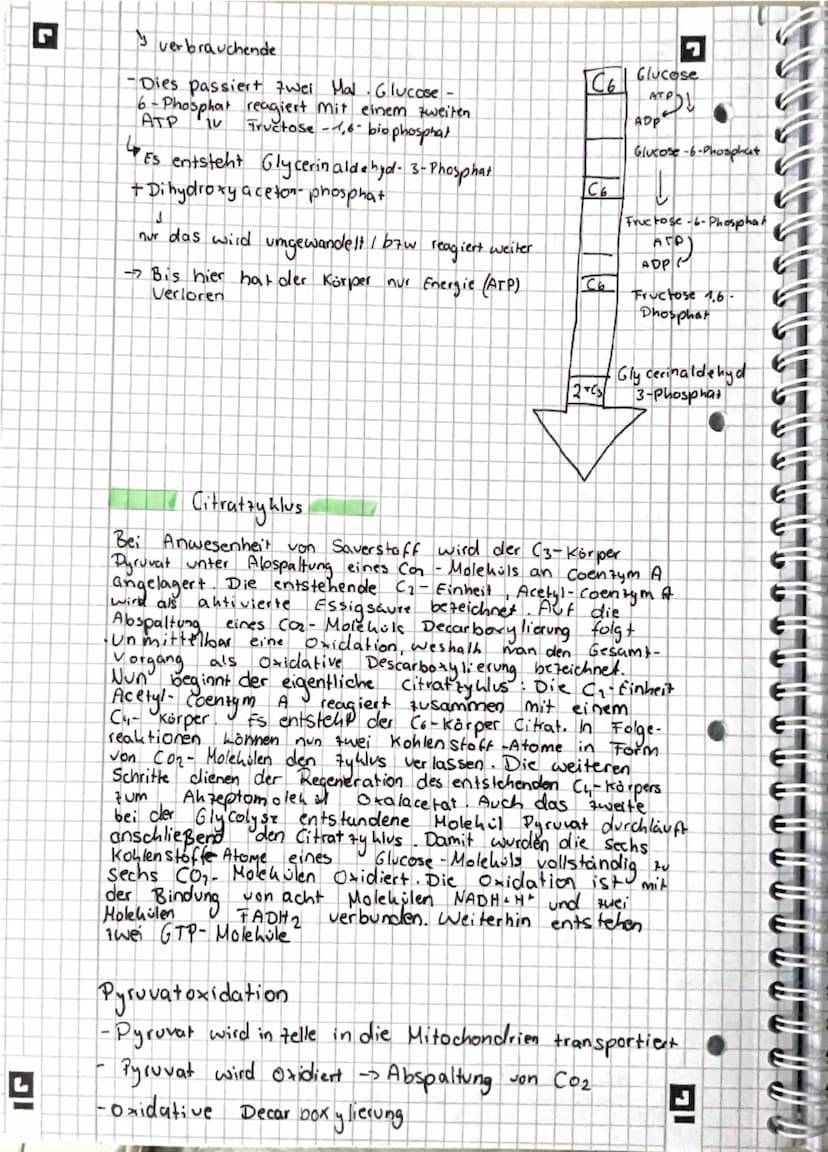 ↳ verbrauchende
- Dies passiert zwei Mal. Glucose -
6-Phosphat reagiert mit einem zweiten
ATP zu Fructose-1,6-biophosphat
↳ Es entsteht Glycerinaldehyd-3-Phosphat
+ Dihydroxyaceton-phosphat
↓
nur das wird umgewandelt / bzw reagiert weiter
→ Bis hier hat der Körper nur Energie (ATP)
verloren
C6 Glucose
ATP
ADP
Glucose-6-Phosphat
C6
Fructose-6-Phosphat
ATP
ADP
C6 Fructose 1,6-
Phosphat
Glycerinaldehyd
2*C3 3-Phosphat
Citratzyklus
Bei Anwesenheit von Sauerstoff wird der C3-Körper
Pyruvat unter Abspaltung eines CO2-Moleküls an Coenzym A
angelagert. Die entstehende C2-Einheit, Acetyl-Coenzym A
wird als aktivierte Essigsäure bezeichnet. Auf die
Abspaltung eines CO2-Moleküls Decarboxylierung folgt
unmittelbar eine Oxidation, weshalb man den Gesamt-
vorgang als Oxidative Descarboxylierung bezeichnet.
Nun beginnt der eigentliche Citratzyklus: Die C2-Einheit
Acetyl-Coenzym A reagiert zusammen mit einem
C4-Körper. Es entsteht der C6-Körper Citrat. In Folge-
reaktionen können nun zwei Kohlenstoff-Atome in Form
von CO2-Molekülen den Zyklus verlassen. Die weiteren
Schritte dienen der Regeneration des entstehenden C4-Körpers
zum Akzeptormolekül Oxalacetat. Auch das zweite
bei der Glycolyse entstandene Molekül Pyruvat durchläuft
anschließend den Citratzyklus. Damit wurden die sechs
Kohlenstoffe Atome eines Glucose-Moleküls vollständig zu
sechs CO2-Molekülen Oxidiert. Die Oxidation ist mit
der Bindung von acht Molekülen NADH+H+ und zwei
Molekülen FADH2 verbunden. Weiterhin entstehen
zwei GTP-Moleküle
Pyruvatoxidation
- Pyruvat wird in Zelle in die Mitochondrien transportiert
- Pyruvat wird oxidiert → Abspaltung von CO2
- Oxidative Decarboxylierung